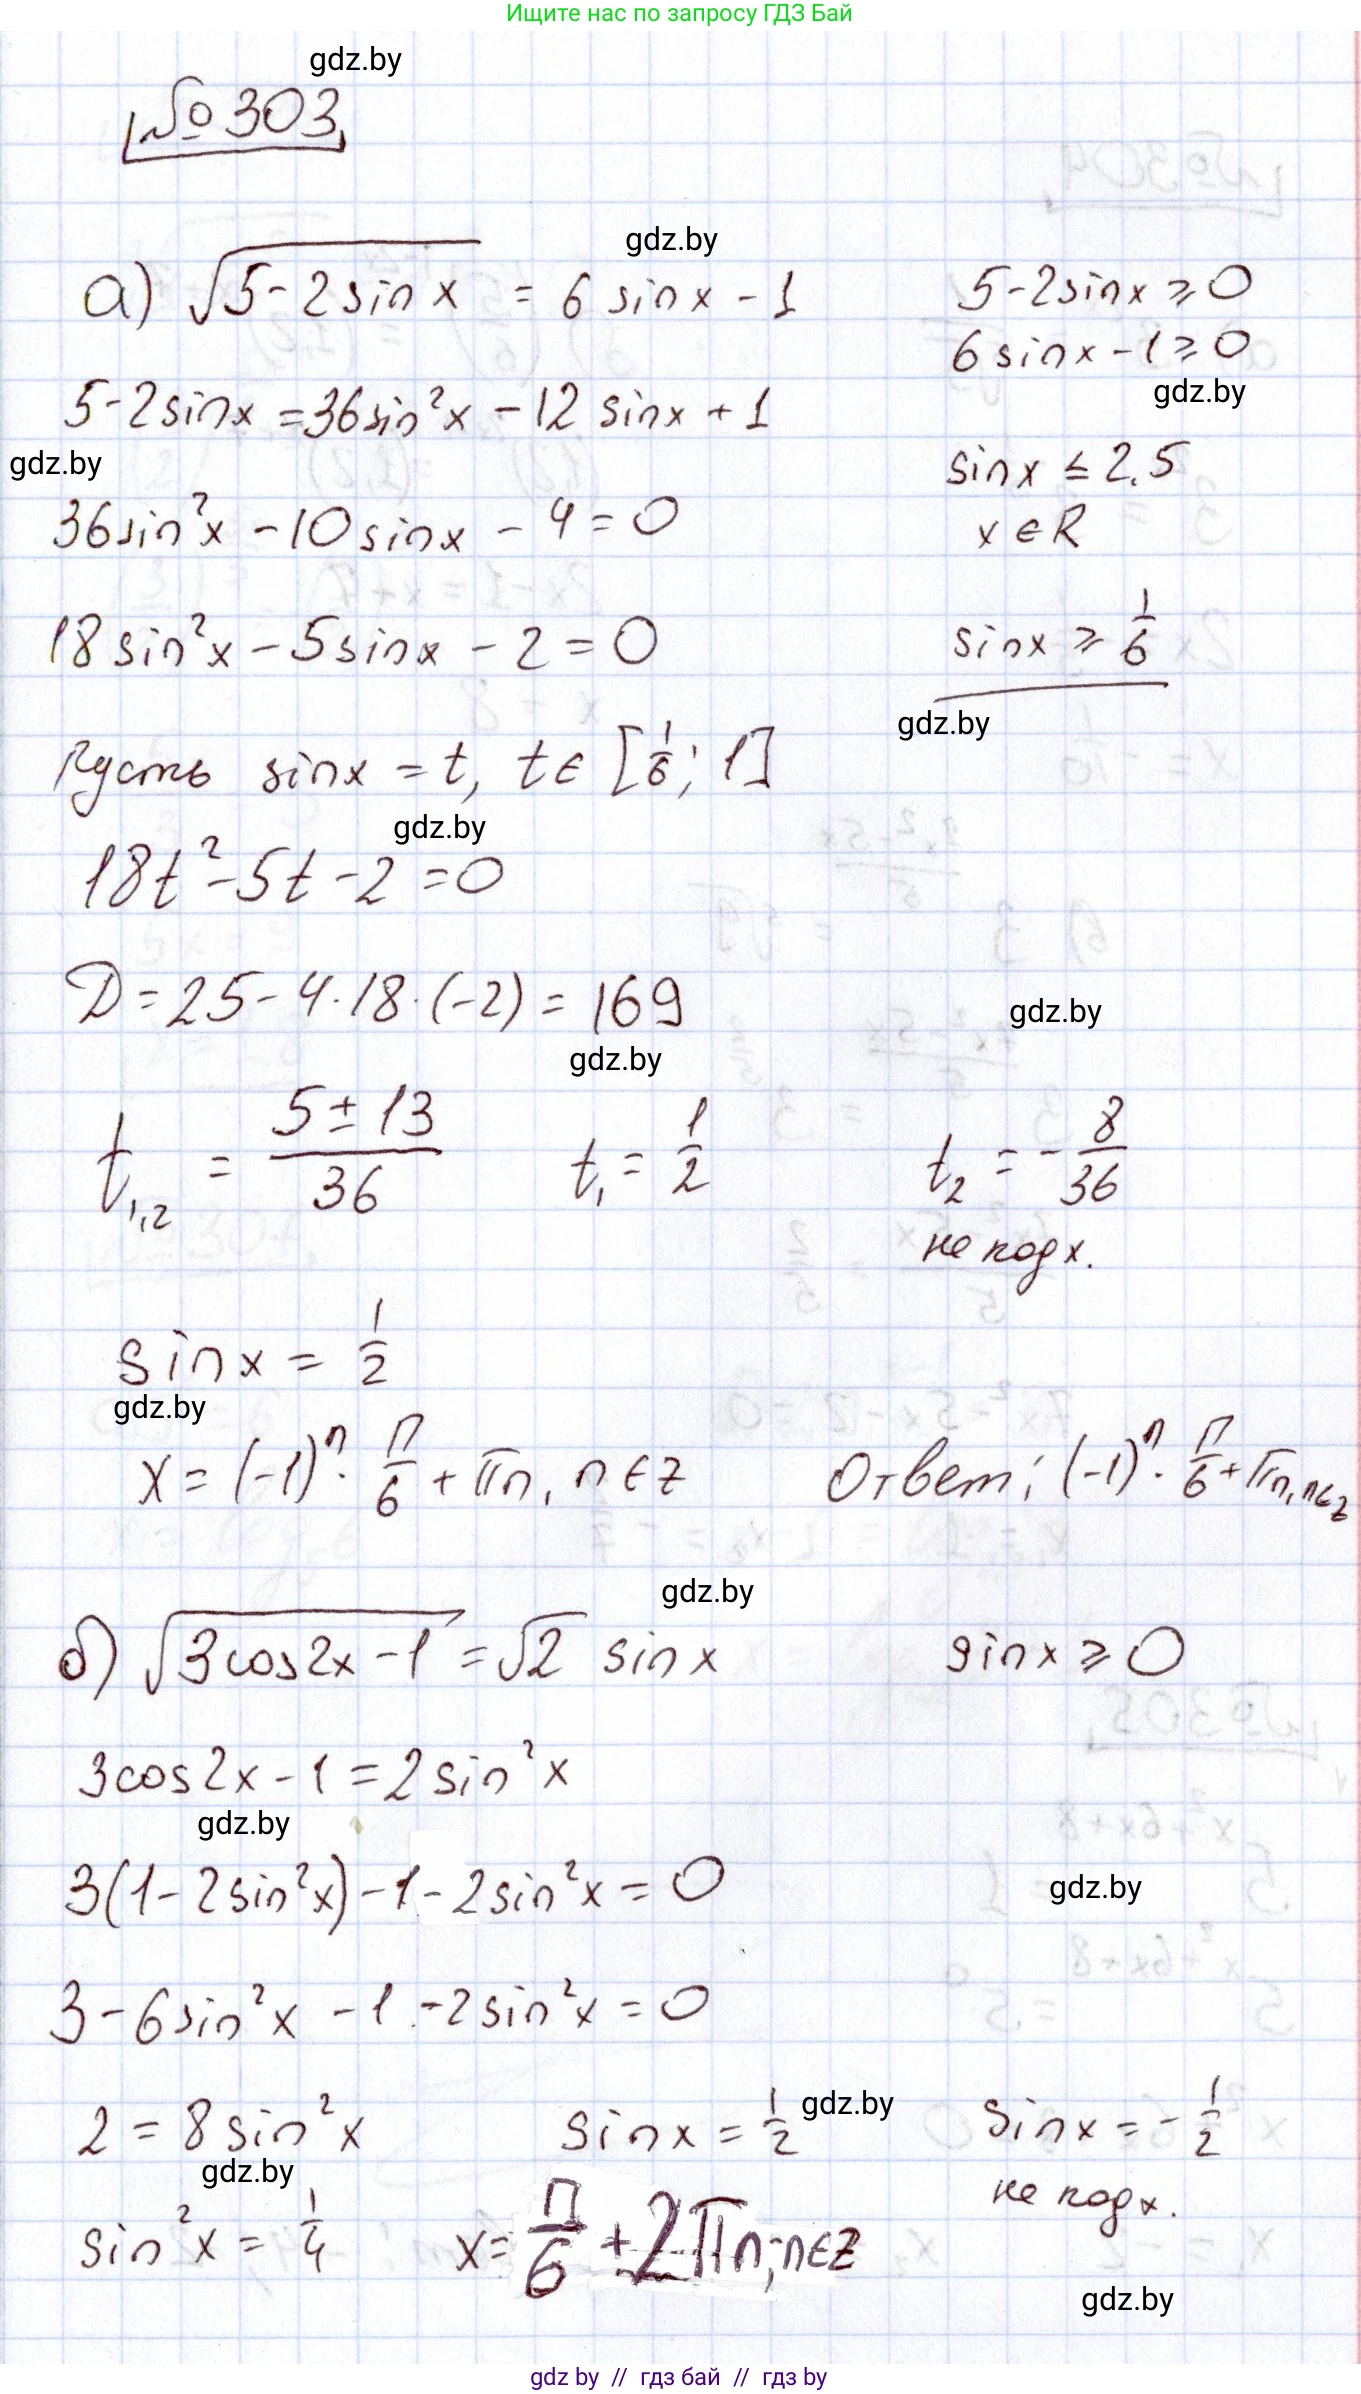 Ищите нас по запросу ГДЗ Бай
gdz.by
№303
gdz.by
а) √(5-2sinx) = 6 sinx - 1
5-2sinx ≥ 0
6 sinx - 1 ≥ 0
gdz.by
5-2sinx = 36sin²x - 12 sinx + 1
gdz.by
sinx ≤ 2,5
x ∈ R
36sin²x - 10 sinx - 4 = 0
18 sin²x - 5 sinx - 2 = 0
sinx ≥ 1/6
gdz.by
Пусть sinx = t, t ∈ [1/6; 1]
gdz.by
18t² - 5t - 2 = 0
D = 25 - 4·18·(-2) = 169
gdz.by
gdz.by
t₁,₂ = (5 ± 13)/36
t₁ = 1/2
t₂ = -8/36
не подх.
sinx = 1/2
gdz.by
x = (-1)ⁿ · П/6 + πn, n ∈ Z
Ответ: (-1)ⁿ · П/6 + πn, n ∈ Z
gdz.by
б) √(3cos2x - 1) = √2 sinx
sinx ≥ 0
3cos2x - 1 = 2sin²x
gdz.by
3(1 - 2sin²x) - 1 - 2sin²x = 0
gdz.by
3 - 6sin²x - 1 - 2sin²x = 0
2 = 8sin²x
gdz.by
sinx = 1/2
gdz.by
sinx = -1/2
не подх.
sin²x = 1/4
x = П/6 + 2πn, n ∈ Z
gdz.by
gdz by // гдз бай // гдз by